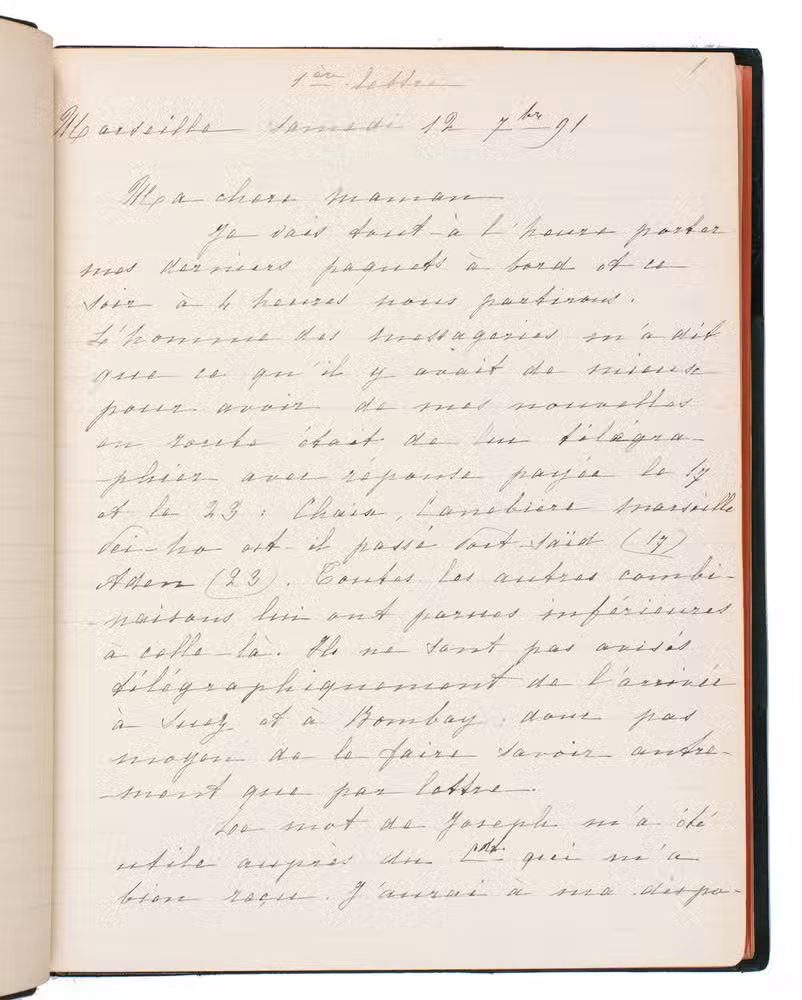 1
1ère lettre
Marseille samedi 12 7bre 91
Ma chère maman
Je vais tout-à l'heure porter
mes derniers paquets à bord et ce
soir à 4 heures nous partirons.
L'homme des messageries m'a dit
que ce qu'il y avait de mieux
pour avoir de mes nouvelles
en route était de lui télégra-
phier avec réponse payée le 17
et le 23 : Chaix, Canebière Marseille
Vei-ho est-il passé Port Saïd (17)
Aden (23). Toutes les autres combi-
naisons lui ont parues inférieures
à celle-là. Ils ne sont pas avisés
télégraphiquement de l'arrivée
à Suez et à Bombay donc pas
moyen de le faire savoir autre-
-ment que par lettre.
Le mot de Joseph m'a été
utile auprès du Cdt qui m'a
bien reçu. J'aurai à ma dispo-